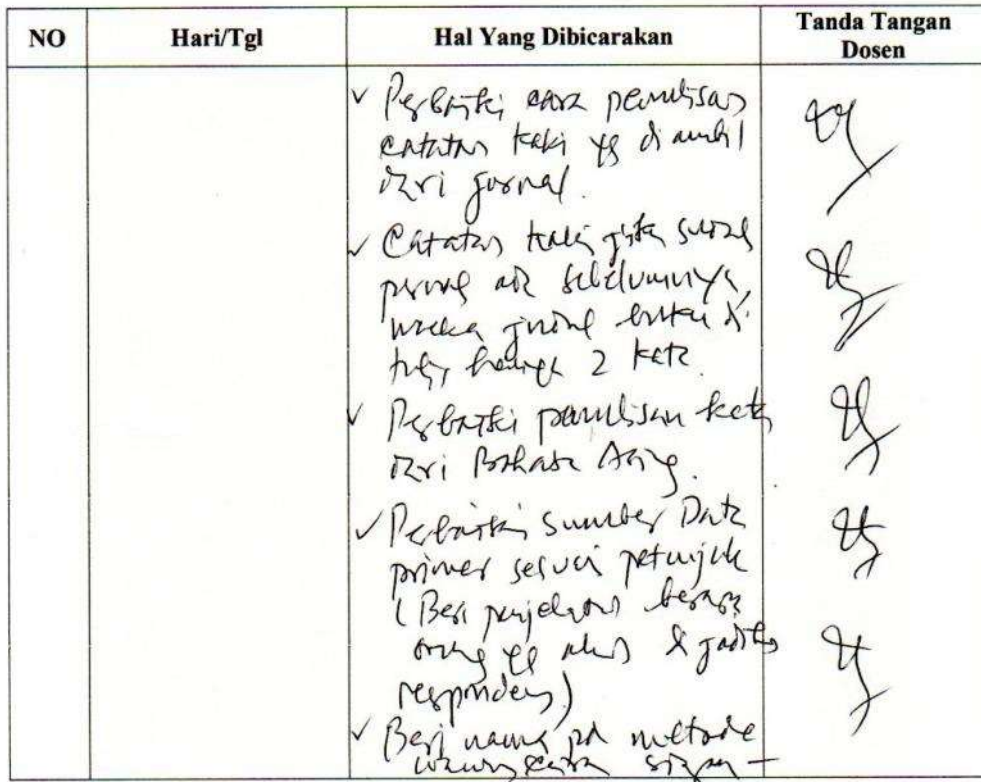 NO Hari/Tgl Hal Yang Dibicarakan Tanda Tangan Dosen
✓ Perbaiki cara penulisan
catatan kaki yg di ambil
dari jurnal.
✓ Catatan kaki jika sudah
pernah ada sebelumnya,
maka judul buku di
tulis hanya 2 kata.
✓ Perbaiki penulisan kata
dari Bahasa Asing.
✓ Perbaiki sumber Data
primer sesuai petunjuk
(Beri penjelasan berapa
orang yg akan di jadikan
responden)
✓ Beri nama pd metode
wawancara siapa